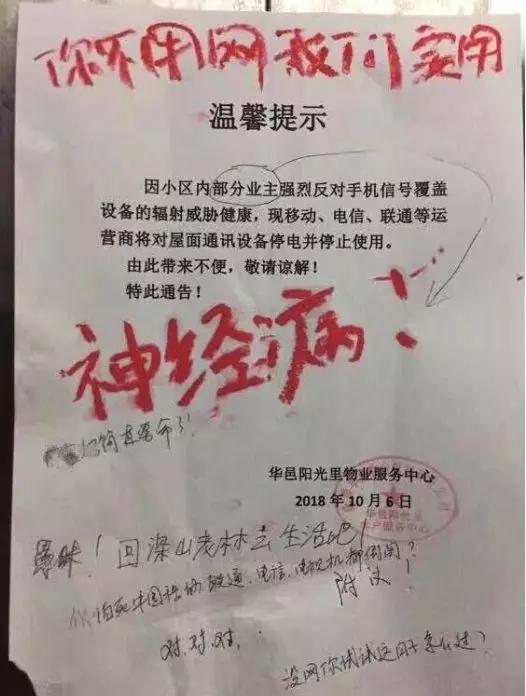 你不用网我们实用
温馨提示
因小区内部分业主强烈反对手机信号覆盖
设备的辐射威胁健康，现移动、电信、联通等运
营商将对屋面通讯设备停电并停止使用。
由此带来不便，敬请谅解！
特此通告！
神经病！
华邑阳光里物业服务中心
2018 年 10 月 6 日
华邑阳光里
客户服务中心
愚昧！回深山老林去生活吧！
电信、电视机都倒闭？
附议！
对.对.对.
没网你试试这日子怎么过？